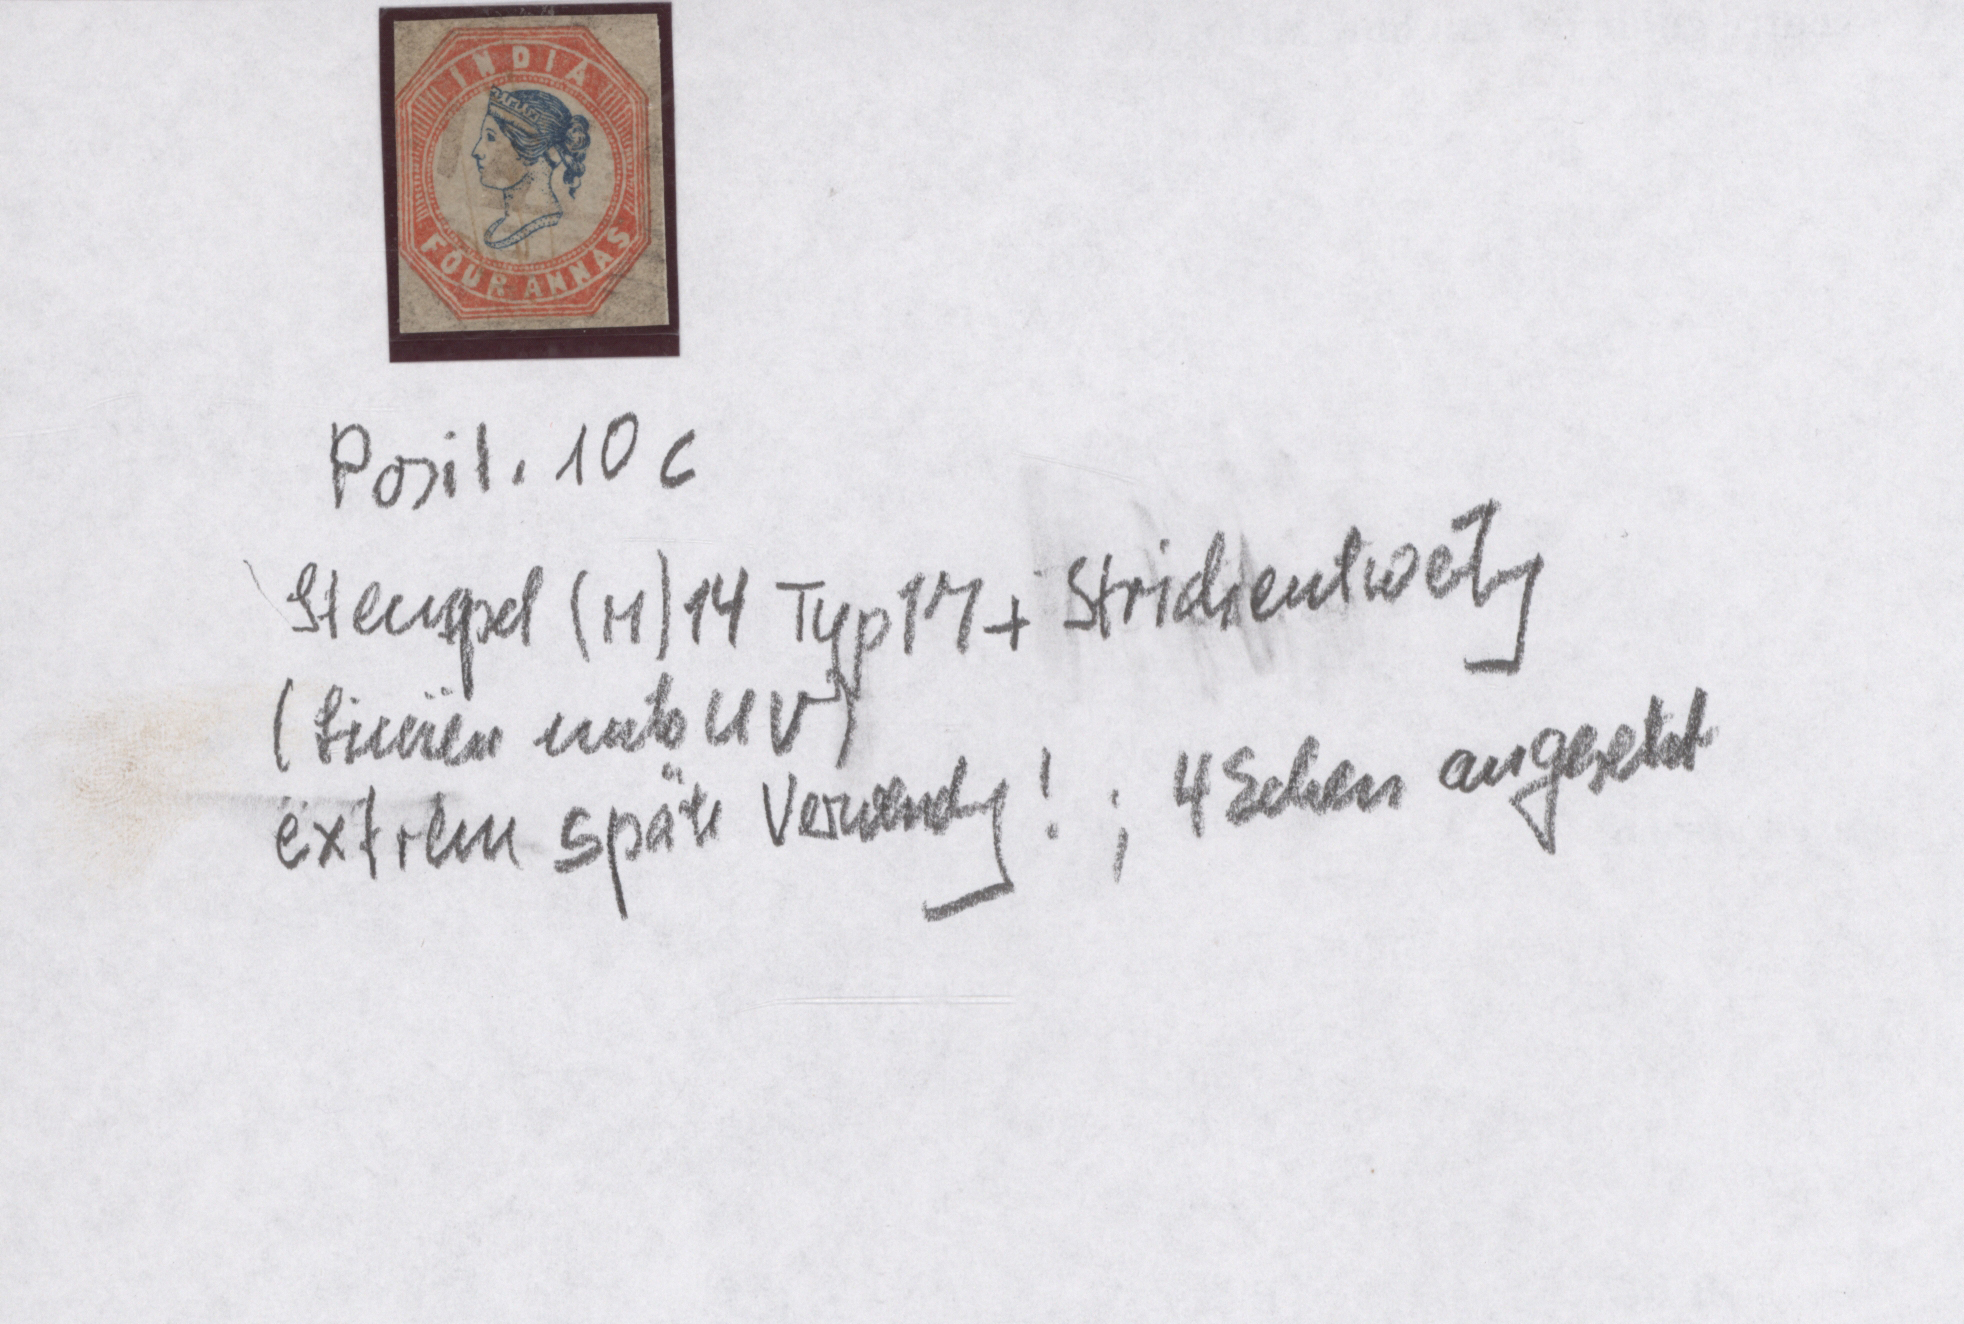 INDIA
FOUR ANNAS
Posit. 10 c
Stempel (M) 14 Typ 17 + Strichentwertg
(Linien unter UV)
extrem späte Verwendg! ; 4 Ecken angesetzt